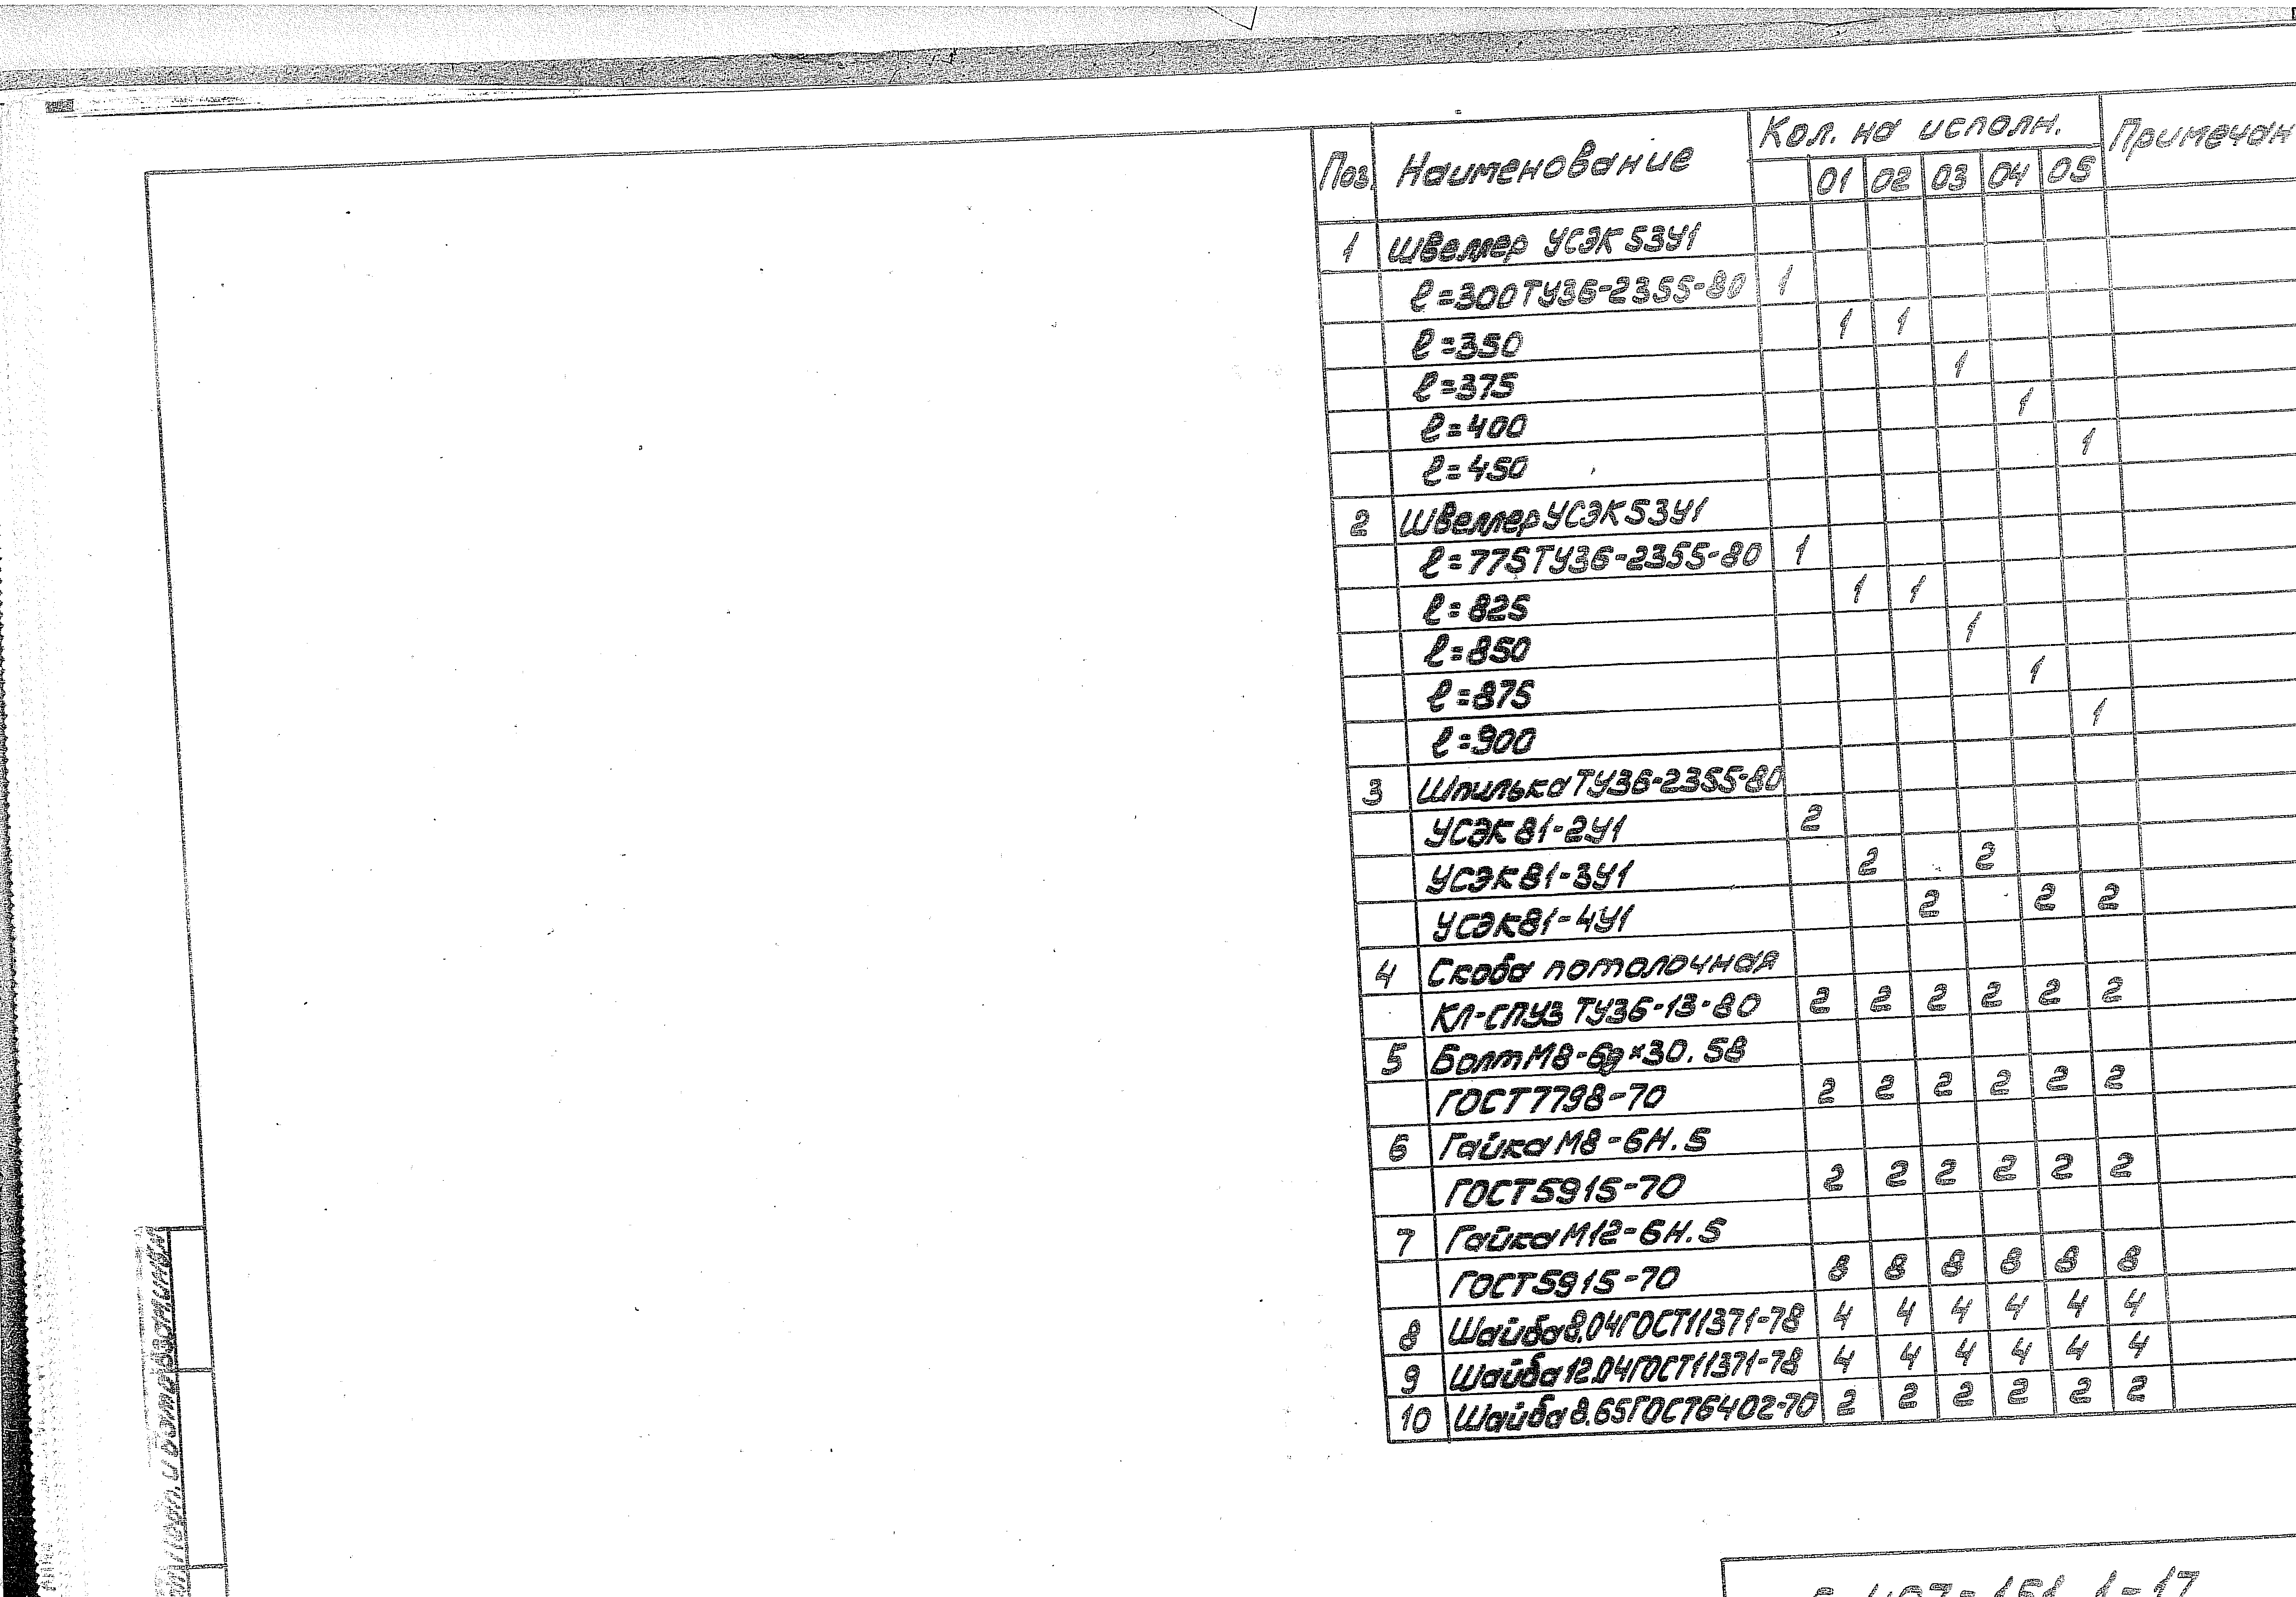 Поз. Наименование Кол. на исполн. Примечан
01 02 03 04 05
1 Швеллер УСЭК53У1
ℓ=300ТУ36-2355-80 1
ℓ=350 1 1
ℓ=375 1
ℓ=400 1
ℓ=450 1
2 Швеллер УСЭК53У1
ℓ=775ТУ36-2355-80 1
ℓ=825 1 1
ℓ=850 1
ℓ=875 1
ℓ=900 1
3 Шпилька ТУ36-2355-80
УСЭК81-2У1 2
УСЭК81-3У1 2 2
УСЭК81-4У1 2 2 2
4 Скоба потолочная
КЛ-СПУ3 ТУ36-13-80 2 2 2 2 2 2
5 Болт М8-6g×30.58
ГОСТ7798-70 2 2 2 2 2 2
6 Гайка М8-6Н.5
ГОСТ5915-70 2 2 2 2 2 2
7 Гайка М12-6Н.5
ГОСТ5915-70 8 8 8 8 8 8
8 Шайба8.04ГОСТ11371-78 4 4 4 4 4 4
9 Шайба12.04ГОСТ11371-78 4 4 4 4 4 4
10 Шайба8.65ГОСТ6402-70 2 2 2 2 2 2